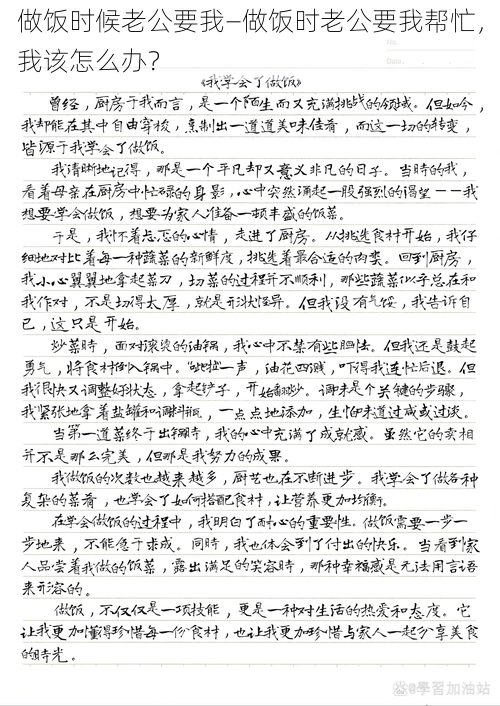 做饭时候老公要我—做饭时老公要我帮忙，
我该怎么办？
No.
Date.
《我学会了做饭》
曾经，厨房于我而言，是一个陌生而又充满挑战的领域。但如今，
我却能在其中自由穿梭，烹制出一道道美味佳肴，而这一切的转变，
皆源于我学会了做饭。
我清晰地记得，那是一个平凡却又意义非凡的日子。当时的我，
看着母亲在厨房中忙碌的身影，心中突然涌起一股强烈的渴望——我
想要学会做饭，想要为家人准备一顿丰盛的饭菜。
于是，我怀着忐忑的心情，走进了厨房。从挑选食材开始，我仔
细地对比着每一种蔬菜的新鲜度，挑选着最合适的肉类。回到厨房，
我小心翼翼地拿起菜刀，切菜的过程并不顺利，那些蔬菜似乎总在和
我作对，不是切得太厚，就是形状怪异。但我没有气馁，我告诉自
己，这只是开始。
炒菜时，面对滚烫的油锅，我心中不禁有些胆怯。但我还是鼓起
勇气，将食材倒入锅中。"呲啦"一声，油花四溅，吓得我连忙后退。但
我很快又调整好状态，拿起铲子，开始翻炒。调味是个关键的步骤，
我紧张地拿着盐罐和调料瓶，一点点地添加，生怕味道过咸或过淡。
当第一道菜终于出锅时，我的心中充满了成就感。虽然它的卖相
并不是那么完美，但那是我努力的成果。
我做饭的次数也越来越多，厨艺也在不断进步。我学会了做各种
复杂的菜肴，也学会了如何搭配食材，让营养更加均衡。
在学会做饭的过程中，我明白了耐心的重要性。做饭需要一步一
步地来，不能急于求成。同时，我也体会到了付出的快乐。当看到家
人品尝着我做的饭菜，露出满足的笑容时，那种幸福感是无法用言语
来形容的。
做饭，不仅仅是一项技能，更是一种对生活的热爱和态度。它
让我更加懂得珍惜每一份食材，也让我更加珍惜与家人一起分享美食
的时光。
@學習加油站